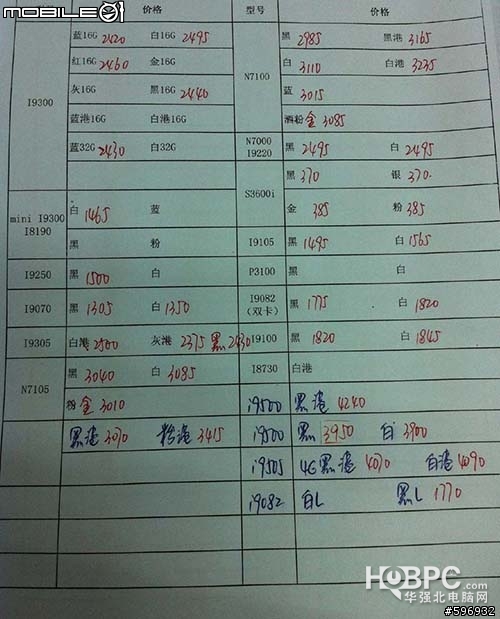 MOBILE01
价格 型号 价格
蓝16G 2420 白16G 2495 黑 2985 黑港 3165
红16G 2460 金16G 白 3110 白港 3235
I9300 N7100
灰16G 黑16G 2440 蓝 3015
蓝港16G 白港16G 酒粉 金 3085
蓝32G 2430 白32G N7000 I9220 黑 2495 白 2495
黑 370 银 370
S3600i
mini I9300 I8190 白 1465 蓝 金 385 粉 385
黑 粉 I9105 黑 1495 白 1565
I9250 黑 1500 白 P3100 黑 白
I9070 黑 1305 白 1350 I9082 (双卡) 黑 1775 白 1820
I9305 白港 2500 灰港 2375 黑 2430 I9100 黑 1820 白 1845
N7105 黑 3040 白 3085 I8730 白港
粉 金 3010 i9500 黑港 4240
黑港 3070 粉港 3415 i9500 黑 3950 白 3900
i9505 4G黑港 4070 白港 4090
i9082 白L 黑L 1770
HQBPC.com
华强北电脑网
#596932